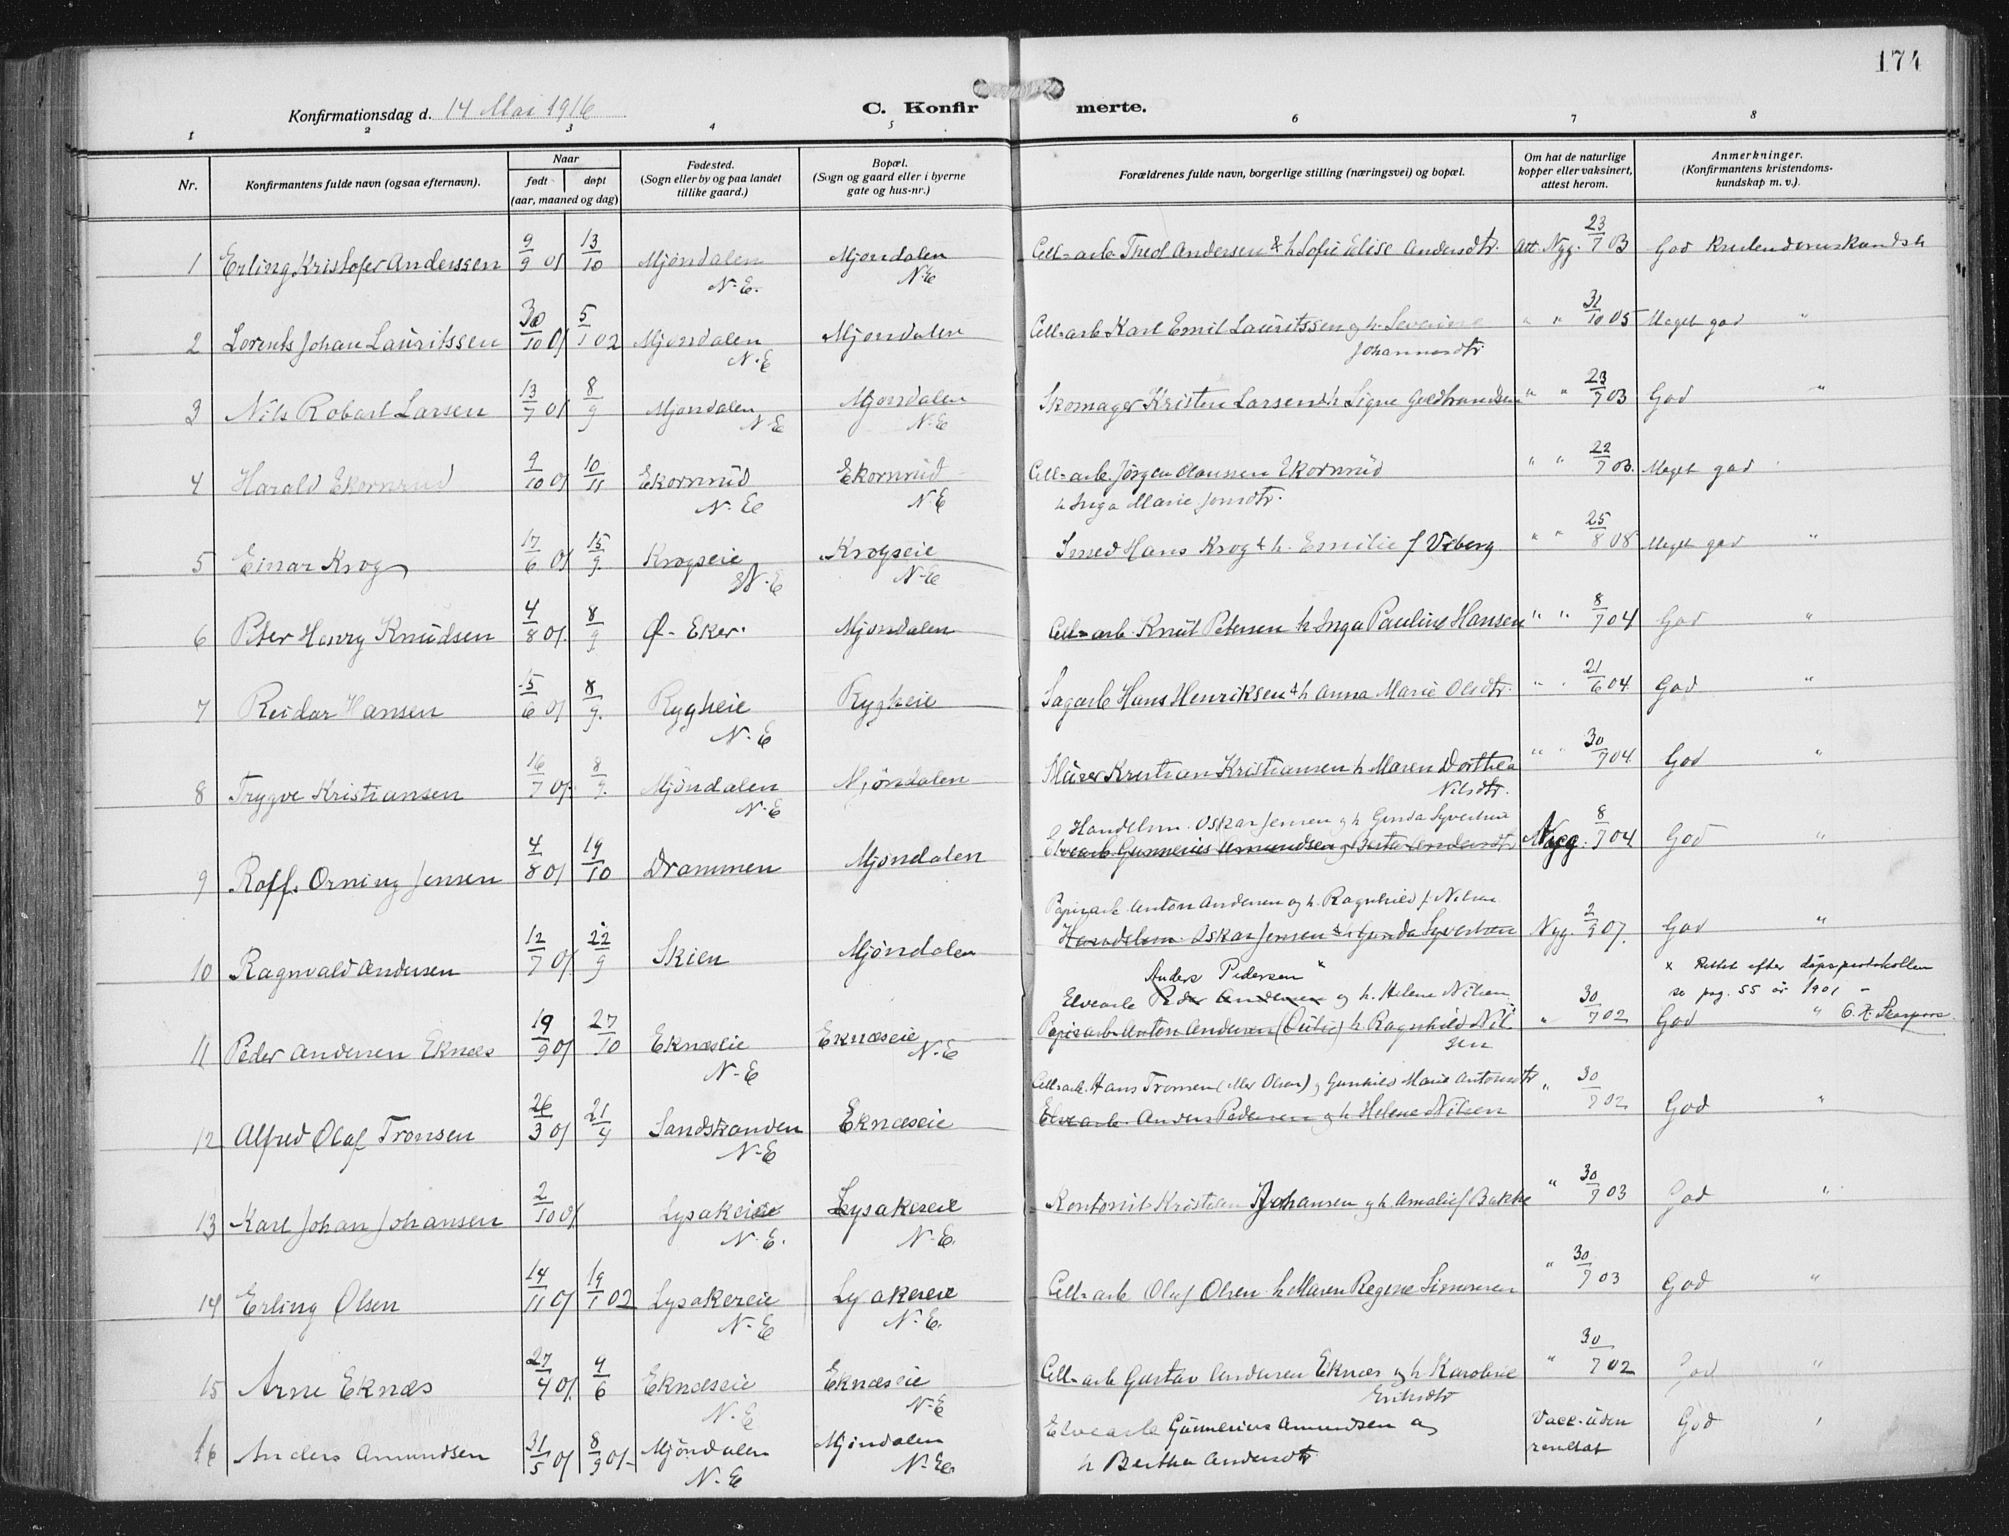 174
Konfirmationsdag d. 14 Mai 1916
C. Konfir merte.
1 2 3 4 5 6 7 8
Nr.
Konfirmantens fulde navn (ogsaa efternavn).
Naar
født døpt
(aar, maaned og dag)
Fødested.
(Sogn eller by og paa landet
tillike gaard.)
Bopæl.
(Sogn og gaard eller i byerne
gate og hus-nr.)
Forældrenes fulde navn, borgerlige stilling (næringsvei) og bopæl.
Om hat de naturlige
kopper eller vaksinert,
attest herom.
Anmerkninger.
(Konfirmantens kristendoms-
kundskap m. v.).
1 Erling Kristofer Anderssen 9/9 01 13/10 Mjøndalen N-E. Mjøndalen N-E Cell-arb Theod Andersen & h Sofie Elise Andersdtr. Att. Nyg. 23/7 03 God Kristendomskundsk
2 Lorents Johan Lauritssen 30/10 01 5/1 02 Mjøndalen N-E Mjøndalen Cell-arb Karl Emil Lauritssen og h. Severine
Johannesdtr " " 31/10 05 Meget god "
3 Nils Robart Larsen 13/7 01 8/9 Mjøndalen N-E Mjøndalen N-E Skomager Kristen Larsen & h Signe Guldbrandsen " " 23/7 03 God "
4 Harald Ekornrud 9/10 01 10/11 Ekornrud N-E Ekornrud N-E Cell-arb. Jørgen Olaussen Ekornrud
h Inga Marie Jonsdtr. " " 22/7 03. Meget god
5 Einar Krog 17/6 01 15/9. Krogseie N-E Krogseie N-E Smed Hans Krog & h. Emilie f Viberg " " 25/8 08 Meget god "
6 Peter Henry Knudsen 4/8 01. 8/9. Ø-Eker. Mjøndalen Cell-arb. Knut Petersen h Inga Pauline Hansen " " 8/7 04 God "
7 Reidar Hansen 15/6 01 8/9. Rygheie N-E Rygheie Sagarb Hans Henriksen & h Anna Marie Olsdtr. " " 21/6 04 God "
8 Trygve Kristiansen 16/7 01. 8/9. Mjöndalen N-E Mjöndalen Murer Kristian Kristiansen h Maren Dorthea
Nilsdtr. " " 30/7 04 God "
Handelsm. Oskar Jensen og h Gunda Syvertsen
9 Rolf. Orning Jensen 4/8 01 19/10 Drammen Mjøndalen Elvearb Gunnerius Amundsen og Berta Andersdtr Nyg. 8/7 04 God "
Papirarb Anton Andersen og h. Ragnhild f. Nilsen
10 Ragnvald Andersen 12/7 01 22/9 Skien Mjøndalen Handelsm. Oskar Jensen & Gunda Syvertsen Nyg. 2/9 07. God "
Anders Pedersen x Rettet efter dåpsprotokollen
Elvearb Peder Andersen og h. Helene Nilsen se pag. 55 år 1901
11 Peder Andersen Eknæs 19/9 01 27/10 Eknæseie N-E Eknæseie N-E Papirarb Anton Andersen h Ragnhild Nil-
sen " 30/7 02 God "
Cell-arb. Hans Tronsen (eller Olsen) og Gunhild Marie Antonsdtr
12 Alfred Olaf Tronsen 26/3 01 21/4 Sandstranden N-E Eknæseie Elvearb Anders Pedersen og h Helene Nilsen " 30/7 02 God "
13 Karl Johan Johansen 2/10 01 Lysakereie N-E. Lysakereie N-E. Kontorist Kristian Johansen og h. Amalie f Bakke " 30/7 03 God "
14 Erling Olsen 14/11 01 19/1 02 Lysakereie N-E Lysakereie N-E. Cell-arb Olaf Olsen h Maren Regine Simonsen " 30/7 03 God "
15 Arne Eknæs 27/4 01. 9/6 Eknæseie N-E Eknæseie N-E Cell-arb Gustav Andersen Eknæs og h Karoline
Eriksdtr " 30/7 02 God "
16 Anders Amundsen 31/5 01 8/9 01 Mjöndalen N-E Mjöndalen N-E. Elvearb Gunnerius Amundsen og
h Bertha Andersdtr Vacc. uden
resultat God